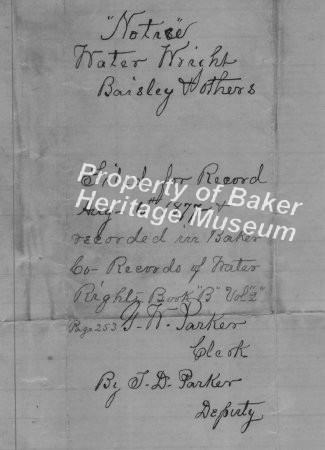 "Notice"
Water Wright
Baisley & others
Filed for Record
Aug
recorded in Baker
Co - Records of Water
Rights Book "B" Vol "2"
Page 253 G. W. Parker
Clerk
By J. D. Parker
Deputy
Property of Baker
Heritage Museum